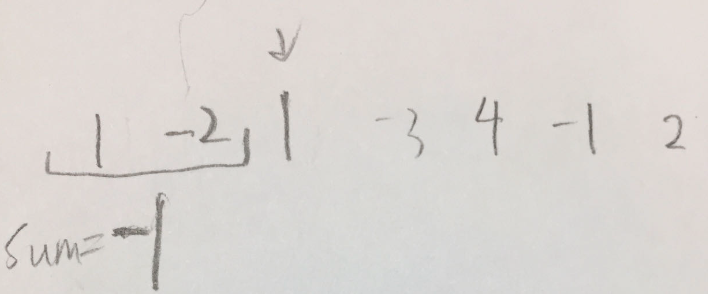 1 -2 1 -3 4 -1 2
sum=-1